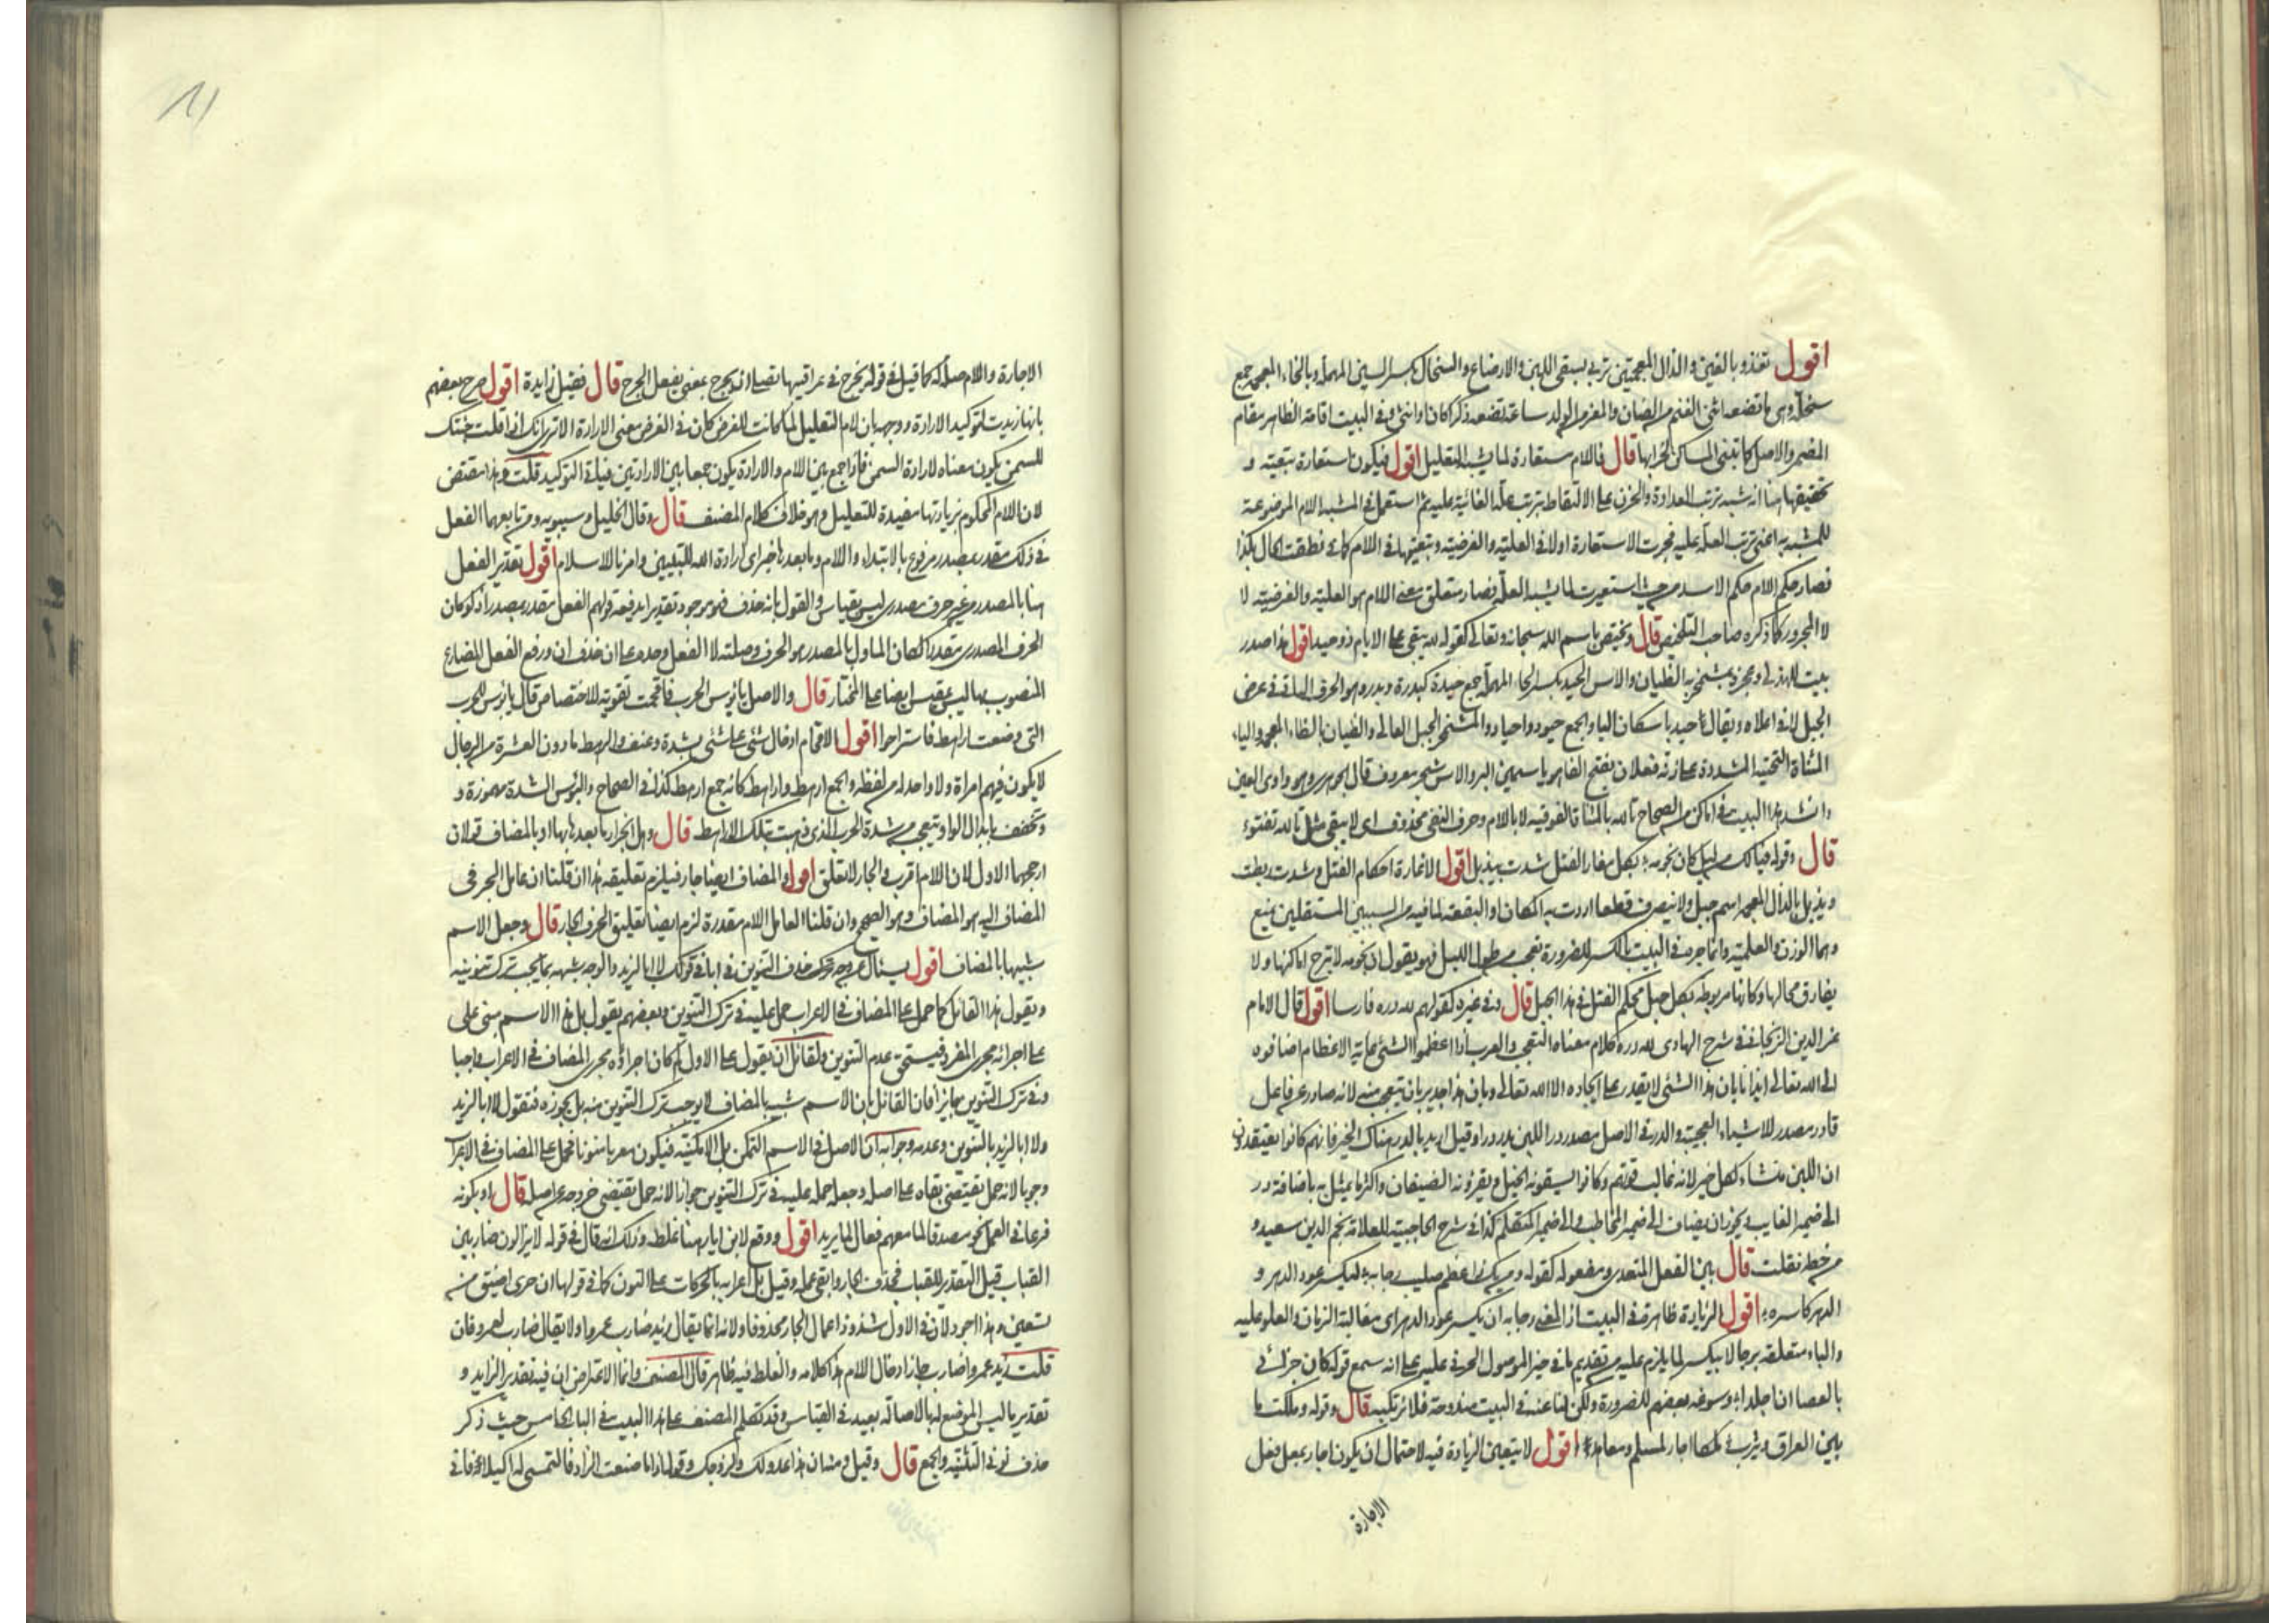 اقول تغذو بالغين والذال المعجمتين تربي بسقي اللبن والارضاع والسخال بكسر السين المهملة وبالخاء المعجمة جمع
سخلة وهي ما تضعه انثى الغنم من الضان والمعز من الولد ساعة تضعه ذكرا كان او انثى وفي البيت اقامة الظاهر مقام
المضمر والاصل كما تبنى المساكن لخرابها قال فاللام مستعارة لما يشبه التعليل اقول فيكون استعارة تبعية و
تحقيقها هنا انه شبه ترتب العداوة والحزن على الالتقاط بترتب علته الغائية عليه ثم استعمل في المشبه اللام الموضوعة
للمشبه به اعني ترتب العلة عليه فجرت الاستعارة اولا في العلية والغرضية وتبعيتها في اللام كما في نطقت الحال بكذا
فصار حكم اللام حكم الاسد من حيث استعيرت لما يشبه العلة فصار متعلق معنى اللام هو العلية والغرضية لا
لا المجرور كما ذكره صاحب التلخيص قال ويختص باسم الله سبحانه وتعالى كقوله لله يبقى على الايام ذو حيد اقول هذا صدر
بيت للهذلي وعجزه بمشمخر به الظيان والاس الحيد بكسر الحاء المهملة جمع حيدة كبدرة وبدر وهو الحرف الناتي في عرض
الجبل لا في اعلاه ويقال له حيد باسكان اليا والجمع حيود واحياد والمشمخر الجبل العالي والظيان بالظاء المعجمة والياء
المثناة التحتية المشددة على زنة فعلان بفتح الفا هو ياسمين البر والاس شجر معروف قال الجوهري وهو واوي العين
وانشد هذا البيت في اماكن من الصحاح تالله بالمثناة الفوقية لا باللام وحرف النفي محذوف اي لا يبقى مثل تالله تفتوء
قال وقوله فيا لك من ليل كان نجومه بكل مغار الفتل شدت بيذبل اقول الاغارة احكام الفتل وشدت ربطت
ويذبل بالذال المعجمة اسم جبل ولا ينصرف قطعا اردت به المكان او البقعة لما فيه من السببين المستقلين بمنع
وهما الوزن والعلمية وانما جره في البيت بالكسر للضرورة تعجب من طول الليل فهو يقول ان نجومه لا تبرح اماكنها ولا
يفارق محالها وكانها مربوطة بكل حبل محكم الفتل في هذا الجبل قال وفي غيره كقولهم لله دره فارسا اقول قال الامام
عز الدين الزنجاني في شرح الهادي لله دره كلام معناه التعجب والعرب اذا اعظموا الشئ غاية الاعظام اضافوه
الى الله تعالى ايذانا بان هذا الشئ لا يقدر على ايجاده الا الله تعالى وبان هذا جدير بان يتعجب منه لانه صادر عن فاعل
قادر مصدر للاشياء العجيبة والدر في الاصل مصدر در اللبن يدر درا وقيل اريد بالدر هناك الخير فانهم كانوا يعتقدون
ان اللبن منشاء لكل خير لانه غالب قوتهم وكانوا يسقونه الخيل ويقرؤنه الضيفان واكثر ما يمثل به باضافة در
الى ضمير الغايب ويجوز ان يضاف الى ضمير المخاطب والى ضمير المتكلم كذا في شرح الحاجبية للعلامة نجم الدين سعيد و
من خطه نقلت قال بين الفعل المتعدي ومفعوله كقوله ومن يك ذا عظم صليب رجا به ليكسر عود الدهر و
الدهر كاسره اقول الزيادة ظاهرة في البيت اذ المعنى رجا به ان يكسر عود الدهر اي مغالبة الزمان والعلو عليه
والباء متعلقة برجا لا بيكسر لما يلزم عليه من تقديم ما في حيز الموصول الحرفي عليه على انه سمع قوله كان جزائي
بالعصا ان اجلدا وسوغه بعضهم للضرورة ولكن لنا عنه في البيت مندوحة فلا نرتكبه قال وقوله وملكت ما
بين العراق ويثرب ملكا اجار لمسلم ومعاهد اقول لا يتعين الزيادة فيه لاحتمال ان يكون اجار بمعنى فعل
الاجارة
الاجارة واللام صلة له كما قيل في قوله يجرح في عراقيبها نصلي انه يجرح بمعنى يفعل الجرح قال فقيل زايدة اقول صرح بعضهم
بانها زيدت لتوكيد الارادة ووجهه بان لام التعليل لما كانت للغرض كان في الغرض معنى الارادة الا ترى انك اذا قلت جئتك
للسمن يكون معناه لارادة السمن فاذا جمع بين اللام والارادة يكون جمعا بين الارادتين فيفيد التوكيد قلت وهذا متقض
لان اللام المحكوم بزيادتها مفيدة للتعليل وهو خلاف كلام المصنف قال وقال الخليل وسيبويه ومن تابعهما الفعل
في ذلك مقدر بمصدر مرفوع بالابتداء واللام وما بعدها خبر اي ارادة الله للتبيين وامرنا للاسلام اقول تقدير الفعل
هنا بالمصدر من غير حرف مصدري ليس بقياس والقول بانه حذف فهو موجود تقديرا يدفعه قولهم الفعل مقدر بمصدر اذ لو كان
الحرف المصدري مقدرا لكان الماول بالمصدر هو الحرف وصلته لا الفعل وحده على ان حذف ان ورفع الفعل المضارع
المنصوب بها ليس بمقيس ايضا على المختار قال والاصل يا بؤس الحرب فاقحمت تقوية للاختصاص قال يا بؤس للحرب
التي وضعت اراهط فاستراحوا اقول الاقحام ادخال شئ على شئ بشدة وعنف والرهط ما دون العشرة من الرجال
لا يكون فيهم امراة ولا واحد له من لفظه والجمع ارهط واراهط كانه جمع ارهط كذا في الصحاح والبؤس الشدة مهموزة و
وتخفف بابدال الواو تعجب من شدة الحرب الذي ذهبت بتلك الاراهط قال وهل انجرار ما بعدها بها او بالمضاف قولان
ارجحهما الاول لان اللام اقرب والجار لا يعلق اقول والمضاف ايضا جار فيلزم تعليقه هذا ان قلنا ان عامل الجر في
المضاف اليه هو المضاف وهو الصحيح وان قلنا العامل اللام مقدرة لزم ايضا تعليق الحرف الجار قال وجعل الاسم
شبيها بالمضاف اقول يسئال عن وجه حذف التنوين في ابا في قولك لا ابا لزيد والوجه شبهه بما يجب ترك تنوينه
ويقول هذا القائل كما حمل على المضاف في الاعراب حمل عليه في ترك التنوين وبعضهم يقول بل هذا الاسم مبني على
على اجرائه مجرى المفرد فيستحق عدم التنوين ولقائل ان يقول على الاول لم كان اجراؤه مجرى المضاف في الاعراب واجبا
وفي ترك التنوين جايزا فان القائل بان الاسم شبيه بالمضاف لا يوجب ترك التنوين منه بل يجوزه فتقول لا ابا لزيد
ولا ابا لزيد بالتنوين وعدمه وجوابه ان الاصل في الاسم التمكن بل الامكنية فيكون معربا منونا فحمل على المضاف في الاعراب
وجوبا لانه حمل يقتضي بقاه على اصله وجعل حمله عليه في ترك التنوين جوازا لانه حمل يقتضي خروجه عن اصله قال او بكونه
فرعا في العمل نحو مصدقا لما معهم فعال لما يريد اقول ووقع لابن اياز هنا غلط وذلك انه قال في قوله لا يزالون ضاربين
القباب قيل التقدير للقباب فحذف الجار وابقى عمله وقيل بل اعرابه بالحركات على النون كما في قولها ان حرى اضيق من
تسعين وهذا اجود لان في الاول شذوذ اعمال الجار محذوفا ولانه انما يقال زيد ضارب عمروا ولا يقال ضارب لعمرو فان
قلت زيد عمروا ضارب جاز ادخال اللام هذا كلامه والغلط فيه ظاهر قال المصنف وانما الاعتراض ان فيه تقدير الزايد و
تقدير ما ليس الموضع له بالاصالة بعيد في القياس وقد تكلم المصنف على هذا البيت في الباب الخامس حيث ذكر
حذف نوني التثنية والجمع قال وقيل ومنشان هذا عدو لك ولزوجك وقوله اذا ما صنعت الزاد فالتمسي له اكيلا فاني